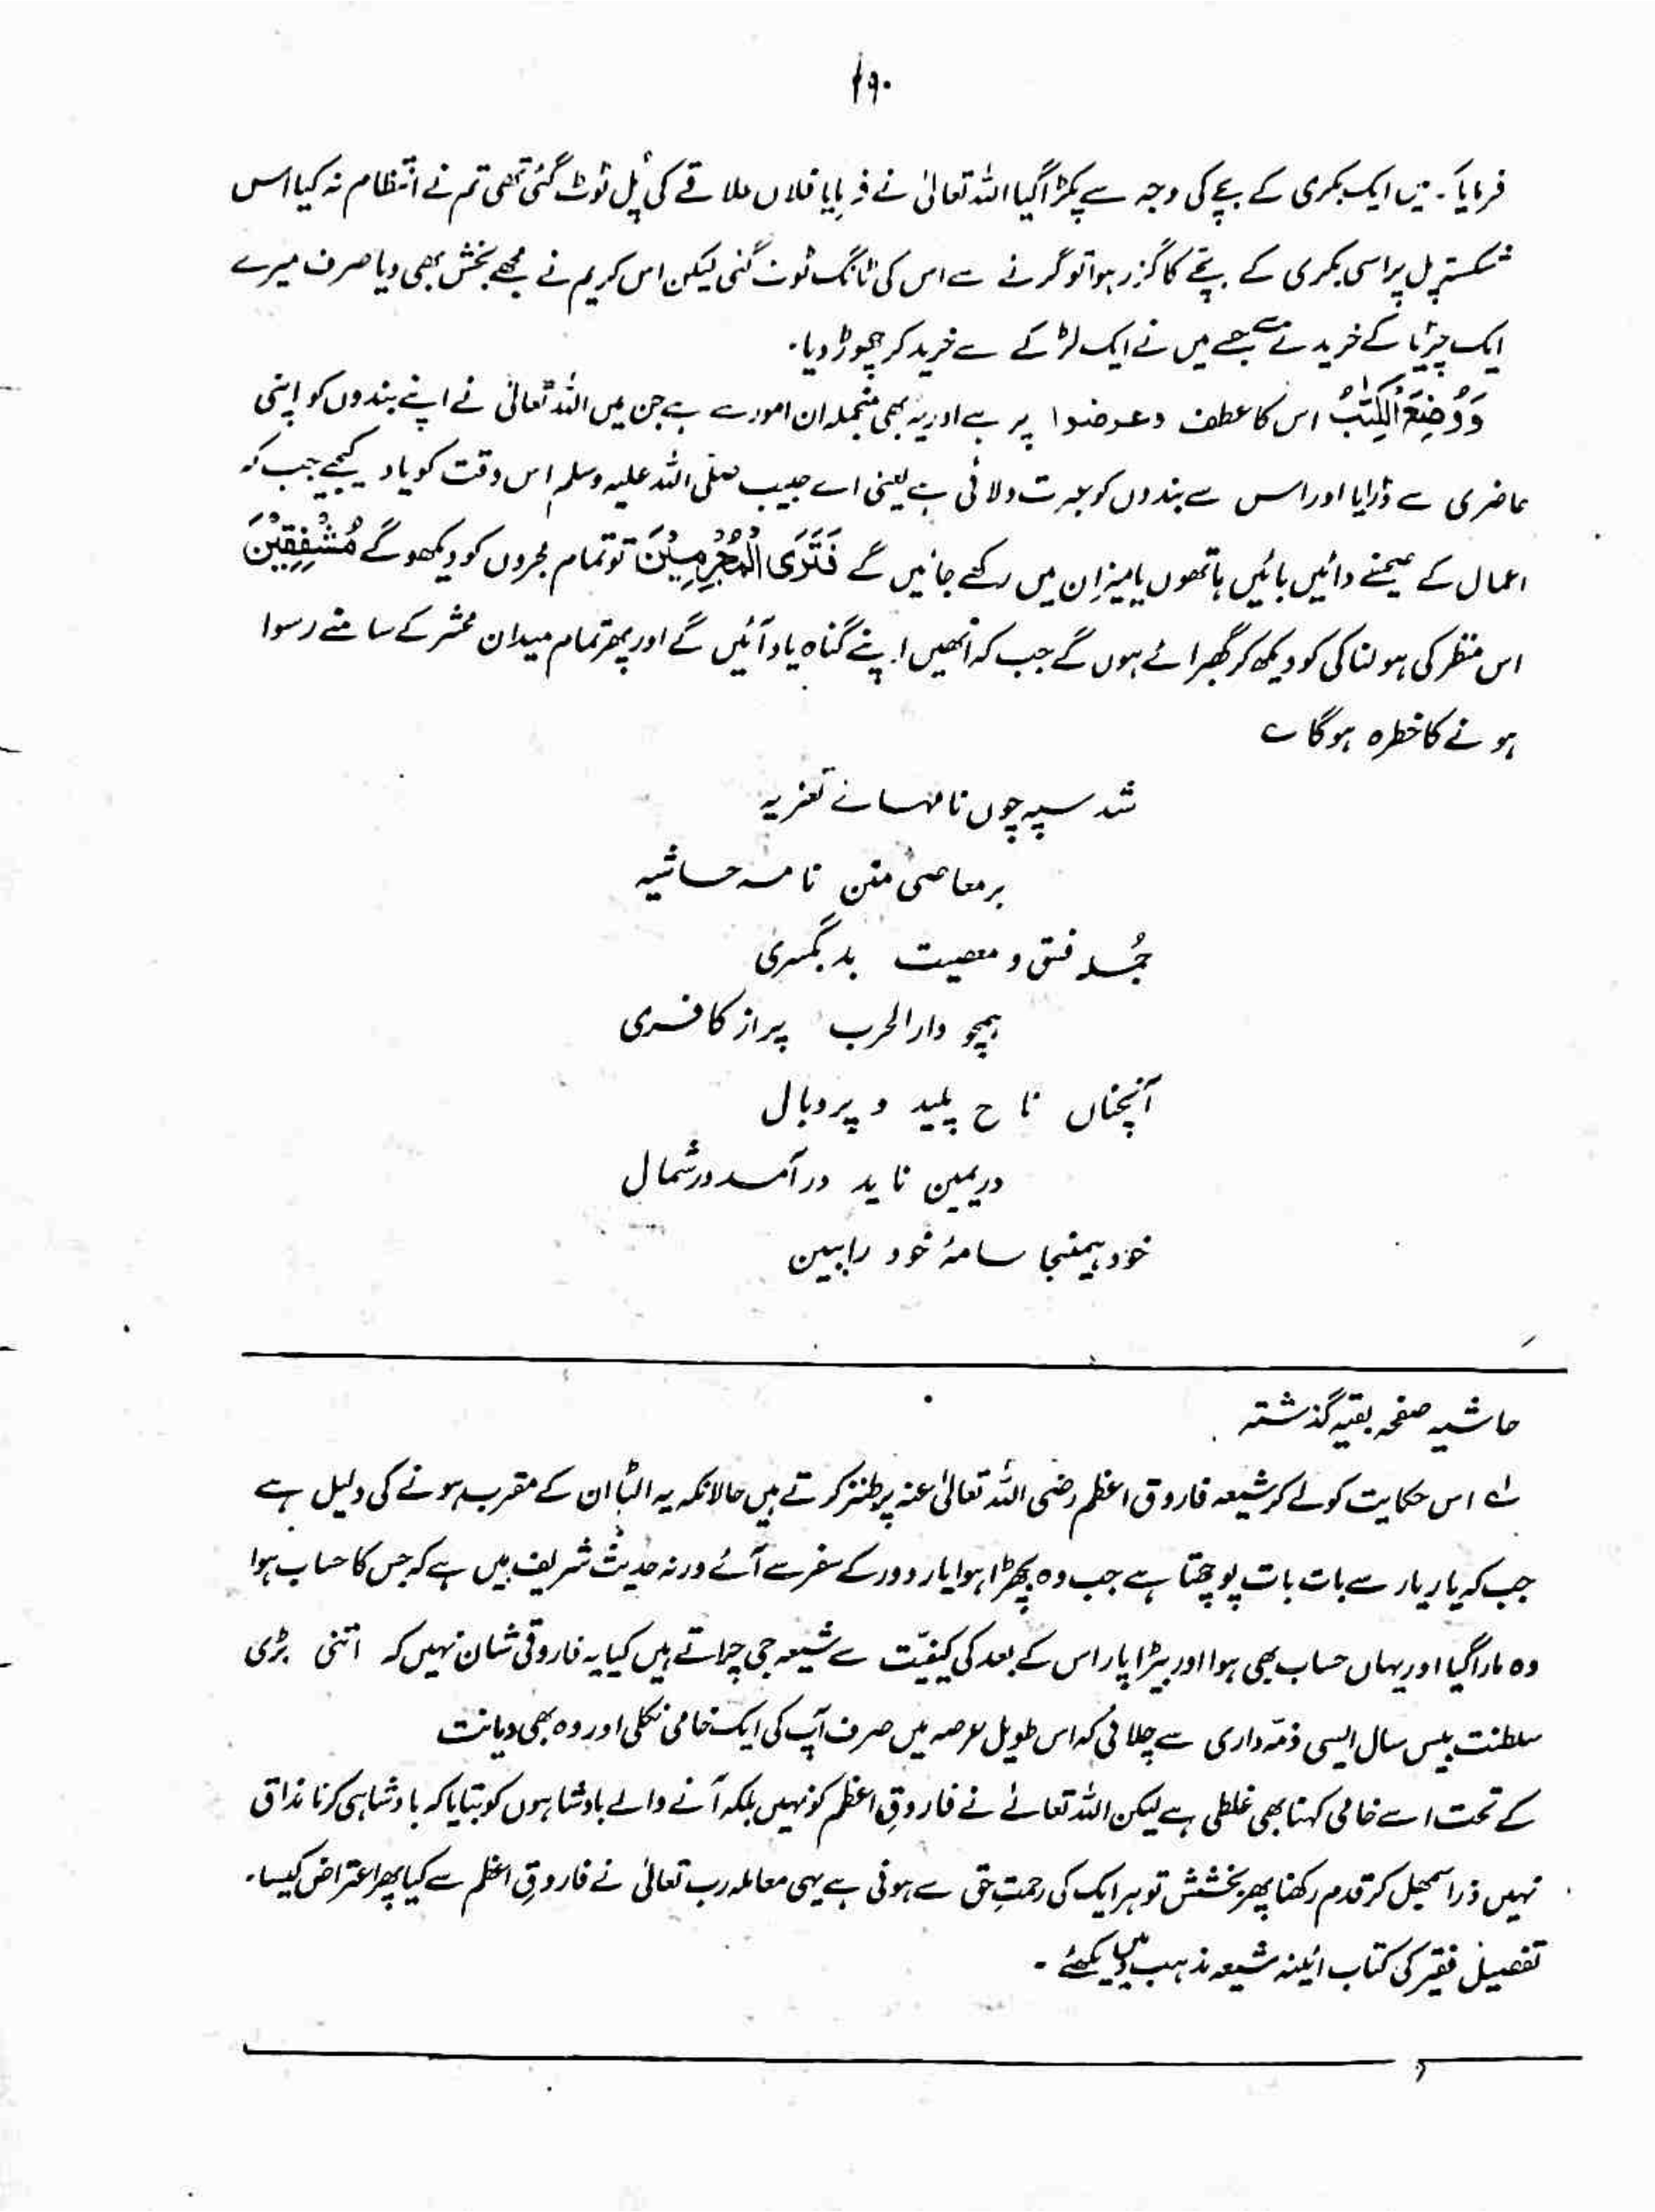 ۱۹۰
فرمایا۔ میں ایک بکری کے بچے کی وجہ سے پکڑا گیا اللہ تعالیٰ نے فرمایا فلاں علاقے کی پل ٹوٹ گئی تھی تم نے انتظام نہ کیا اس
شکستہ پل پر اسی بکری کے بچے کا گزر ہوا تو گرنے سے اس کی ٹانگ ٹوٹ گئی لیکن اس کریم نے مجھے بخش بھی دیا صرف میرے
ایک چڑیا کے خریدنے سے جسے میں نے ایک لڑکے سے خرید کر چھوڑ دیا۔
وَوُضِعَ الْكِتٰبُ اس کا عطف وعرضوا پر ہے اور یہ بھی منجملہ ان امور سے ہے جن میں اللہ تعالیٰ نے اپنے بندوں کو اپنی
حاضری سے ڈرایا اور اس سے بندوں کو عبرت دلائی ہے یعنی اے حبیب صلی اللہ علیہ وسلم اس وقت کو یاد کیجیے جب کہ
اعمال کے صحیفے دائیں بائیں ہاتھوں یا میزان میں رکھے جائیں گے فَتَرَى الْمُجْرِمِيْنَ تو تمام مجرموں کو دیکھو گے مُشْفِقِيْنَ
اس منظر کی ہولناکی کو دیکھ کر گھبرائے ہوں گے جب کہ انھیں اپنے گناہ یاد آئیں گے اور پھر تمام میدان محشر کے سامنے رسوا
ہونے کا خطرہ ہوگا ے
شد سیہ چوں نامہائے تعزیہ
بر معاصی متن نامہ حاشیہ
جُملہ فسق و معصیت بد یکسری
ہمچو دارالحرب پر از کافری
آنچناں نا ح پلید و پروبال
در یمین ناید درآمد در شمال
خود ہمینجا سامۂ خود را ببین
حاشیہ صفحہ بقیہ گذشتہ
لے اس حکایت کو لے کر شیعہ فاروق اعظم رضی اللہ تعالیٰ عنہ پر طنز کرتے ہیں حالانکہ یہ الٹا ان کے مقرب ہونے کی دلیل ہے
جب کہ یار یار سے بات بات پوچھتا ہے جب وہ بچھڑا ہوا یار دور کے سفر سے آئے ورنہ حدیث شریف میں ہے کہ جس کا حساب ہوا
وہ مارا گیا اور یہاں حساب بھی ہوا اور بیڑا پار اس کے بعد کی کیفیّت سے شیعہ جی چراتے ہیں کیا یہ فاروقی شان نہیں کہ اتنی بڑی
سلطنت بیس سال ایسی ذمّہ داری سے چلائی کہ اس طویل عرصہ میں صرف آپ کی ایک خامی نکلی اور وہ بھی دیانت
کے تحت اسے خامی کہنا بھی غلطی ہے لیکن اللہ تعالےٰ نے فاروقِ اعظم کو نہیں بلکہ آنے والے بادشاہوں کو بتایا کہ بادشاہی کرنا مذاق
نہیں ذرا سمجھل کر قدم رکھنا پھر بخشش تو ہر ایک کی رحمتِ حق سے ہوئی ہے یہی معاملہ رب تعالیٰ نے فاروقِ اعظم سے کیا پھر اعتراض کیسا۔
تفصیل فقیر کی کتاب ائینہ شیعہ مذہب میں دیکھئے۔